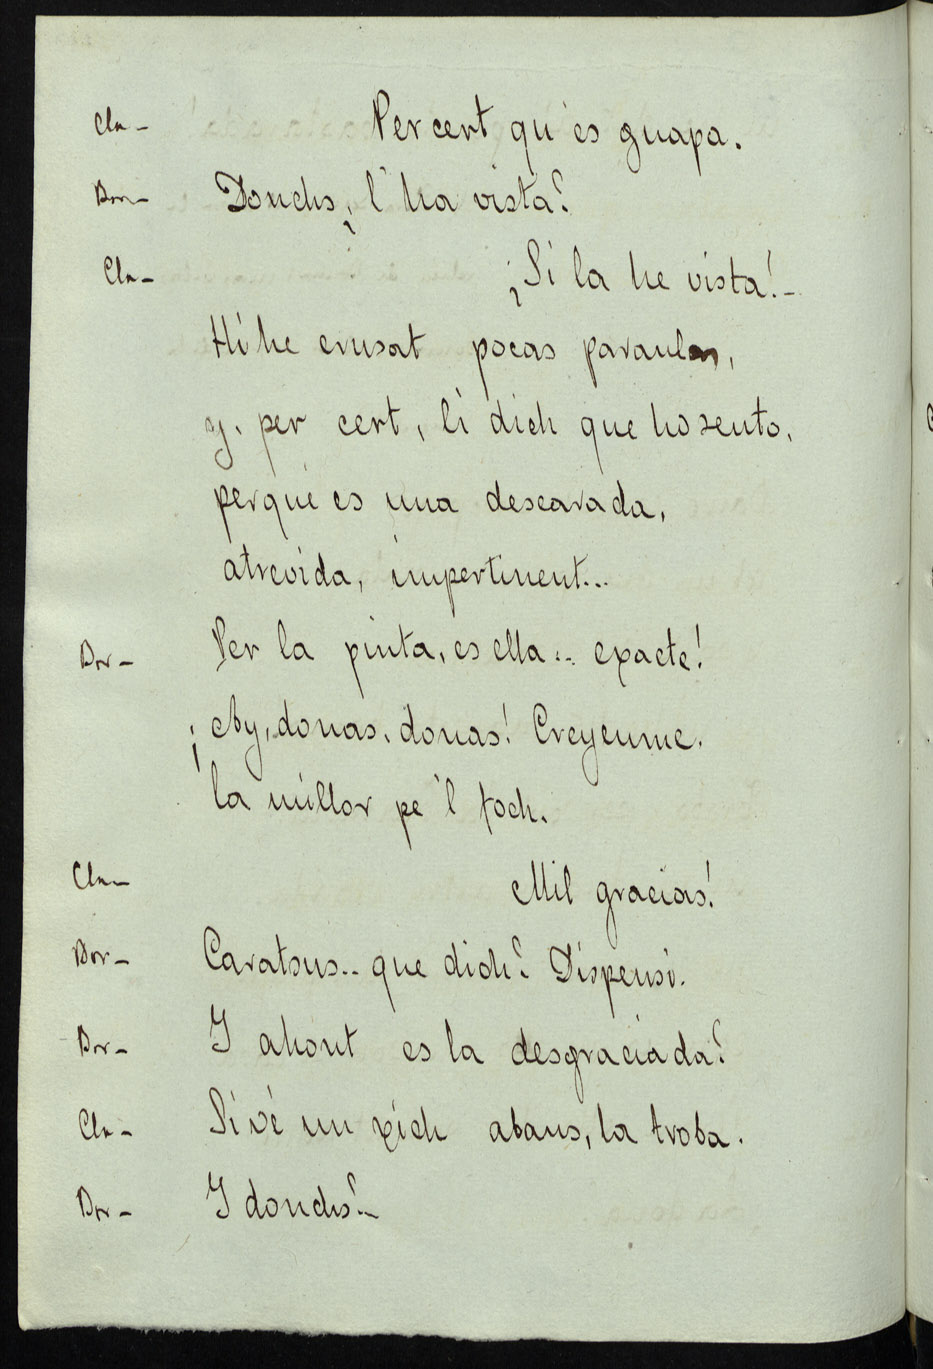 Cla- Per cert qu'es guapa.
Bor- Donchs, ¿l'ha vista?
Cla- ¡Si la he vista!-
Hi he crusat pocas paraulas,
y, per cert, li dich que ho sento,
perqué es una descarada,
atrevida, impertinent...
Bor- Per la pinta, es ella... exacte!
¡Ay, donas, donas! Creyeume,
la millor pe 'l foch.
Cla- Mil gracias!
Bor- Caratsus.. que dich? Dispensi.
Bor- Y ahont es la desgraciada?
Cla- Si vé un xich abans, la troba.
Bor- Y donchs?-